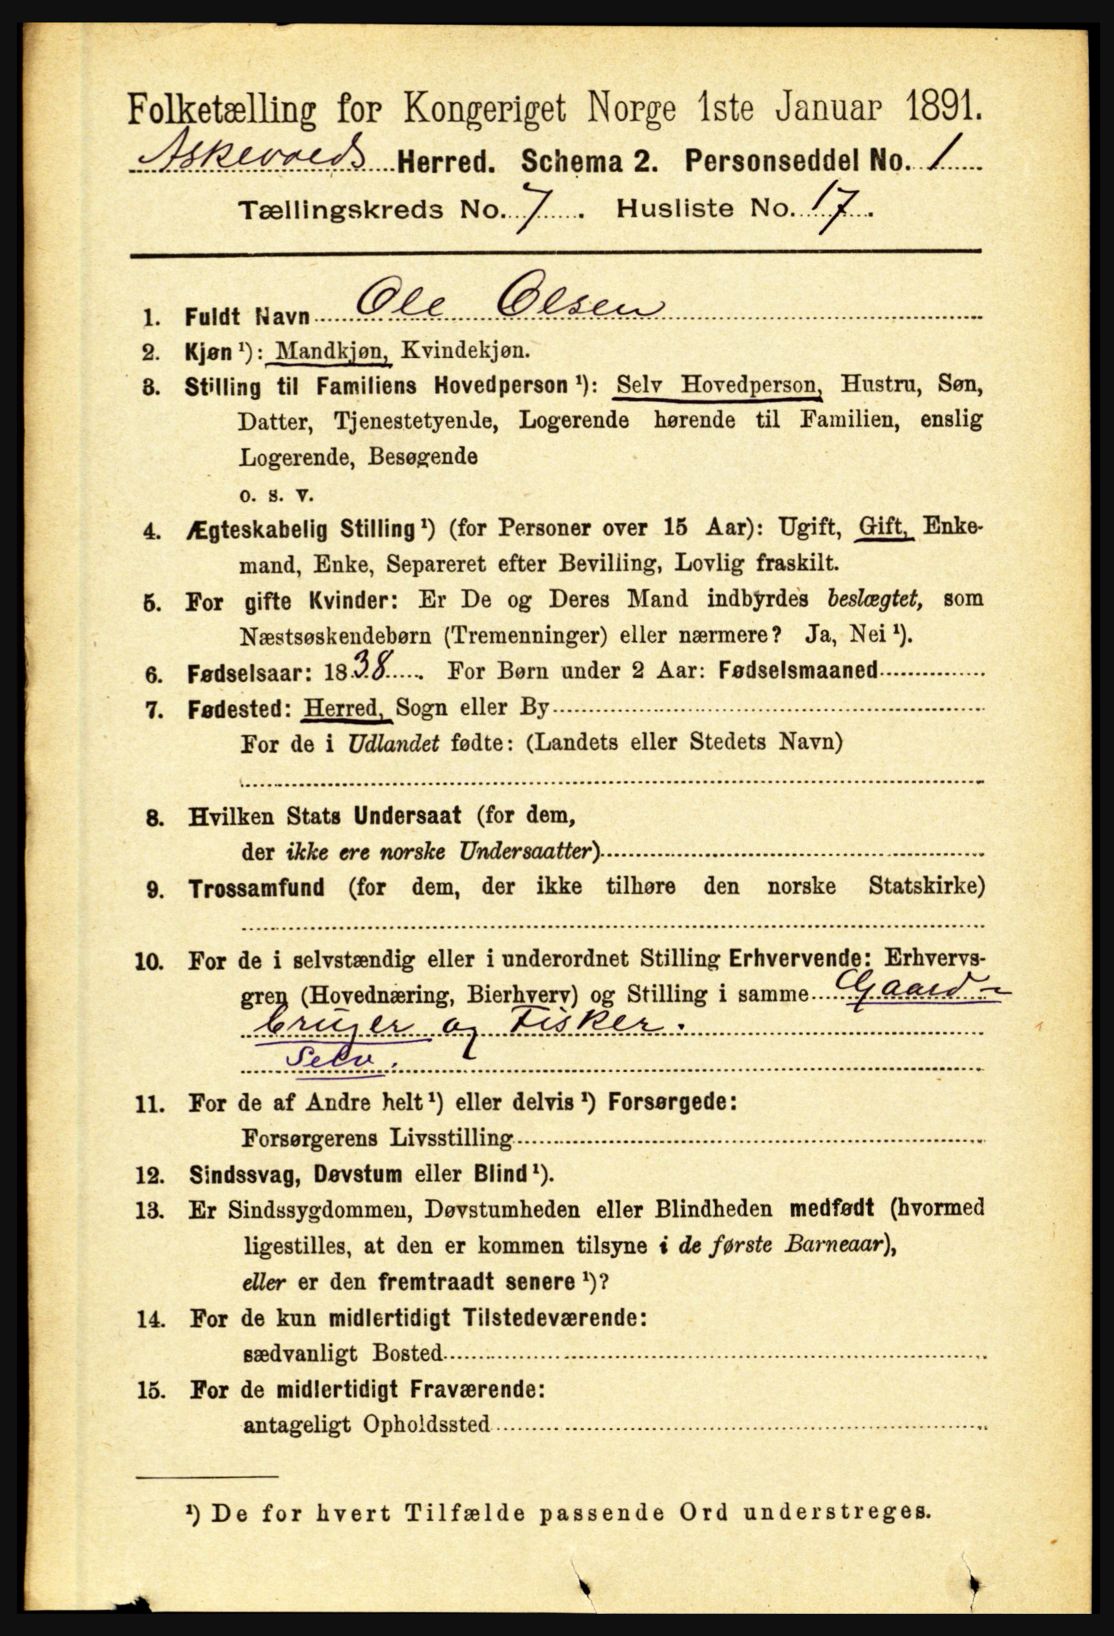 Folketælling for Kongeriget Norge 1ste Januar 1891.
Askevolds Herred. Schema 2. Personseddel No. 1
Tællingskreds No. 7. Husliste No. 17.
1. Fuldt Navn Ole Olsen
2. Kjøn ¹): Mandkjøn, Kvindekjøn.
3. Stilling til Familiens Hovedperson ¹): Selv Hovedperson, Hustru, Søn,
Datter, Tjenestetyende, Logerende hørende til Familien, enslig
Logerende, Besøgende
o. s. v.
4. Ægteskabelig Stilling ¹) (for Personer over 15 Aar): Ugift, Gift, Enke-
mand, Enke, Separeret efter Bevilling, Lovlig fraskilt.
5. For gifte Kvinder: Er De og Deres Mand indbyrdes beslægtet, som
Næstsøskendebørn (Tremenninger) eller nærmere? Ja, Nei ¹).
6. Fødselsaar: 1838. For Børn under 2 Aar: Fødselsmaaned
7. Fødested: Herred, Sogn eller By
For de i Udlandet fødte: (Landets eller Stedets Navn)
8. Hvilken Stats Undersaat (for dem,
der ikke ere norske Undersaatter)
9. Trossamfund (for dem, der ikke tilhøre den norske Statskirke)
10. For de i selvstændig eller i underordnet Stilling Erhvervende: Erhvervs-
gren (Hovednæring, Bierhverv) og Stilling i samme Gaard-
bruger og Fisker.
Selv.
11. For de af Andre helt ¹) eller delvis ¹) Forsørgede:
Forsørgerens Livsstilling
12. Sindssvag, Døvstum eller Blind ¹).
13. Er Sindssygdommen, Døvstumheden eller Blindheden medfødt (hvormed
ligestilles, at den er kommen tilsyne i de første Barneaar),
eller er den fremtraadt senere ¹)?
14. For de kun midlertidigt Tilstedeværende:
sædvanligt Bosted
15. For de midlertidigt Fraværende:
antageligt Opholdssted
¹) De for hvert Tilfælde passende Ord understreges.